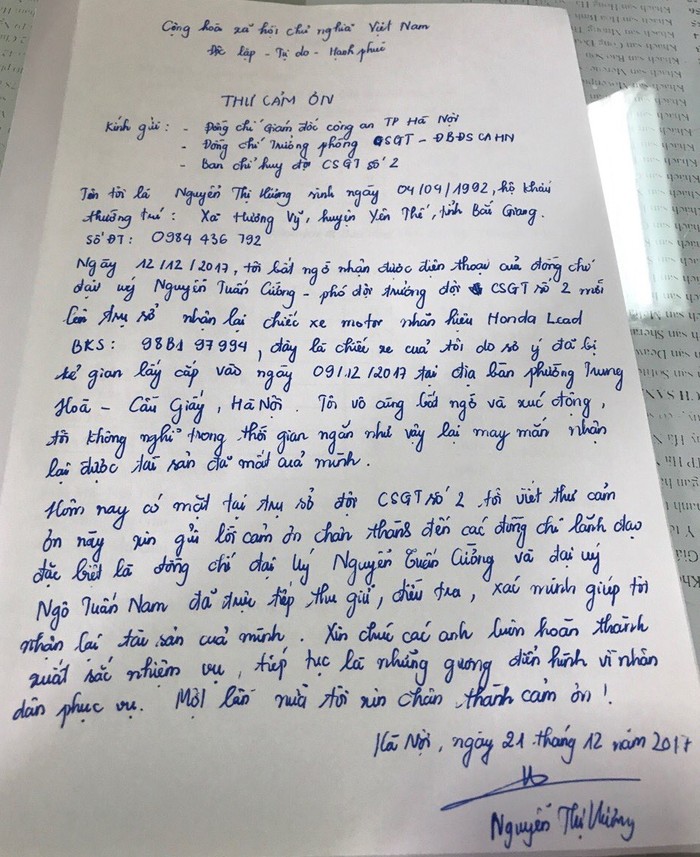 Cộng hoà xã hội chủ nghĩa Việt Nam
Độc lập - Tự do - Hạnh phúc
THƯ CẢM ƠN
Kính gửi : - Đồng chí Giám đốc công an TP Hà Nội
- Đồng chí Trưởng phòng CSGT - ĐBĐS CAHN
- Ban chỉ huy đội CSGT số 2
Tên tôi là Nguyễn Thị Hương sinh ngày 04/04/1992, hộ khẩu
thường trú : Xã Hương Vỹ, huyện Yên Thế, tỉnh Bắc Giang.
Số ĐT : 0984 436 792
Ngày 12/12/2017, tôi bất ngờ nhận được điện thoại của đồng chí
đại uý Nguyễn Tuấn Cường - phó đội trưởng đội CSGT số 2 mời
lên trụ sở nhận lại chiếc xe motor nhãn hiệu Honda Lead
BKS : 98B1 97994, đây là chiếc xe của tôi do sơ ý đã bị
kẻ gian lấy cắp vào ngày 09/12/2017 tại địa bàn phường Trung
Hoà - Cầu Giấy, Hà Nội. Tôi vô cùng bất ngờ và xúc động,
tôi không nghĩ trong thời gian ngắn như vậy lại may mắn nhận
lại được tài sản đã mất của mình.
Hôm nay có mặt tại trụ sở đội CSGT số 2 tôi viết thư cảm
ơn này xin gửi lời cảm ơn chân thành đến các đồng chí lãnh đạo
đặc biệt là đồng chí đại uý Nguyễn Tuấn Cường và đại uý
Ngô Tuấn Nam đã trực tiếp thu giữ, điều tra, xác minh giúp tôi
nhận lại tài sản của mình. Xin chúc các anh luôn hoàn thành
xuất sắc nhiệm vụ, tiếp tục là những gương điển hình vì nhân
dân phục vụ. Một lần nữa tôi xin chân thành cảm ơn !
Hà Nội, ngày 21 tháng 12 năm 2017
Nguyễn Thị Hương